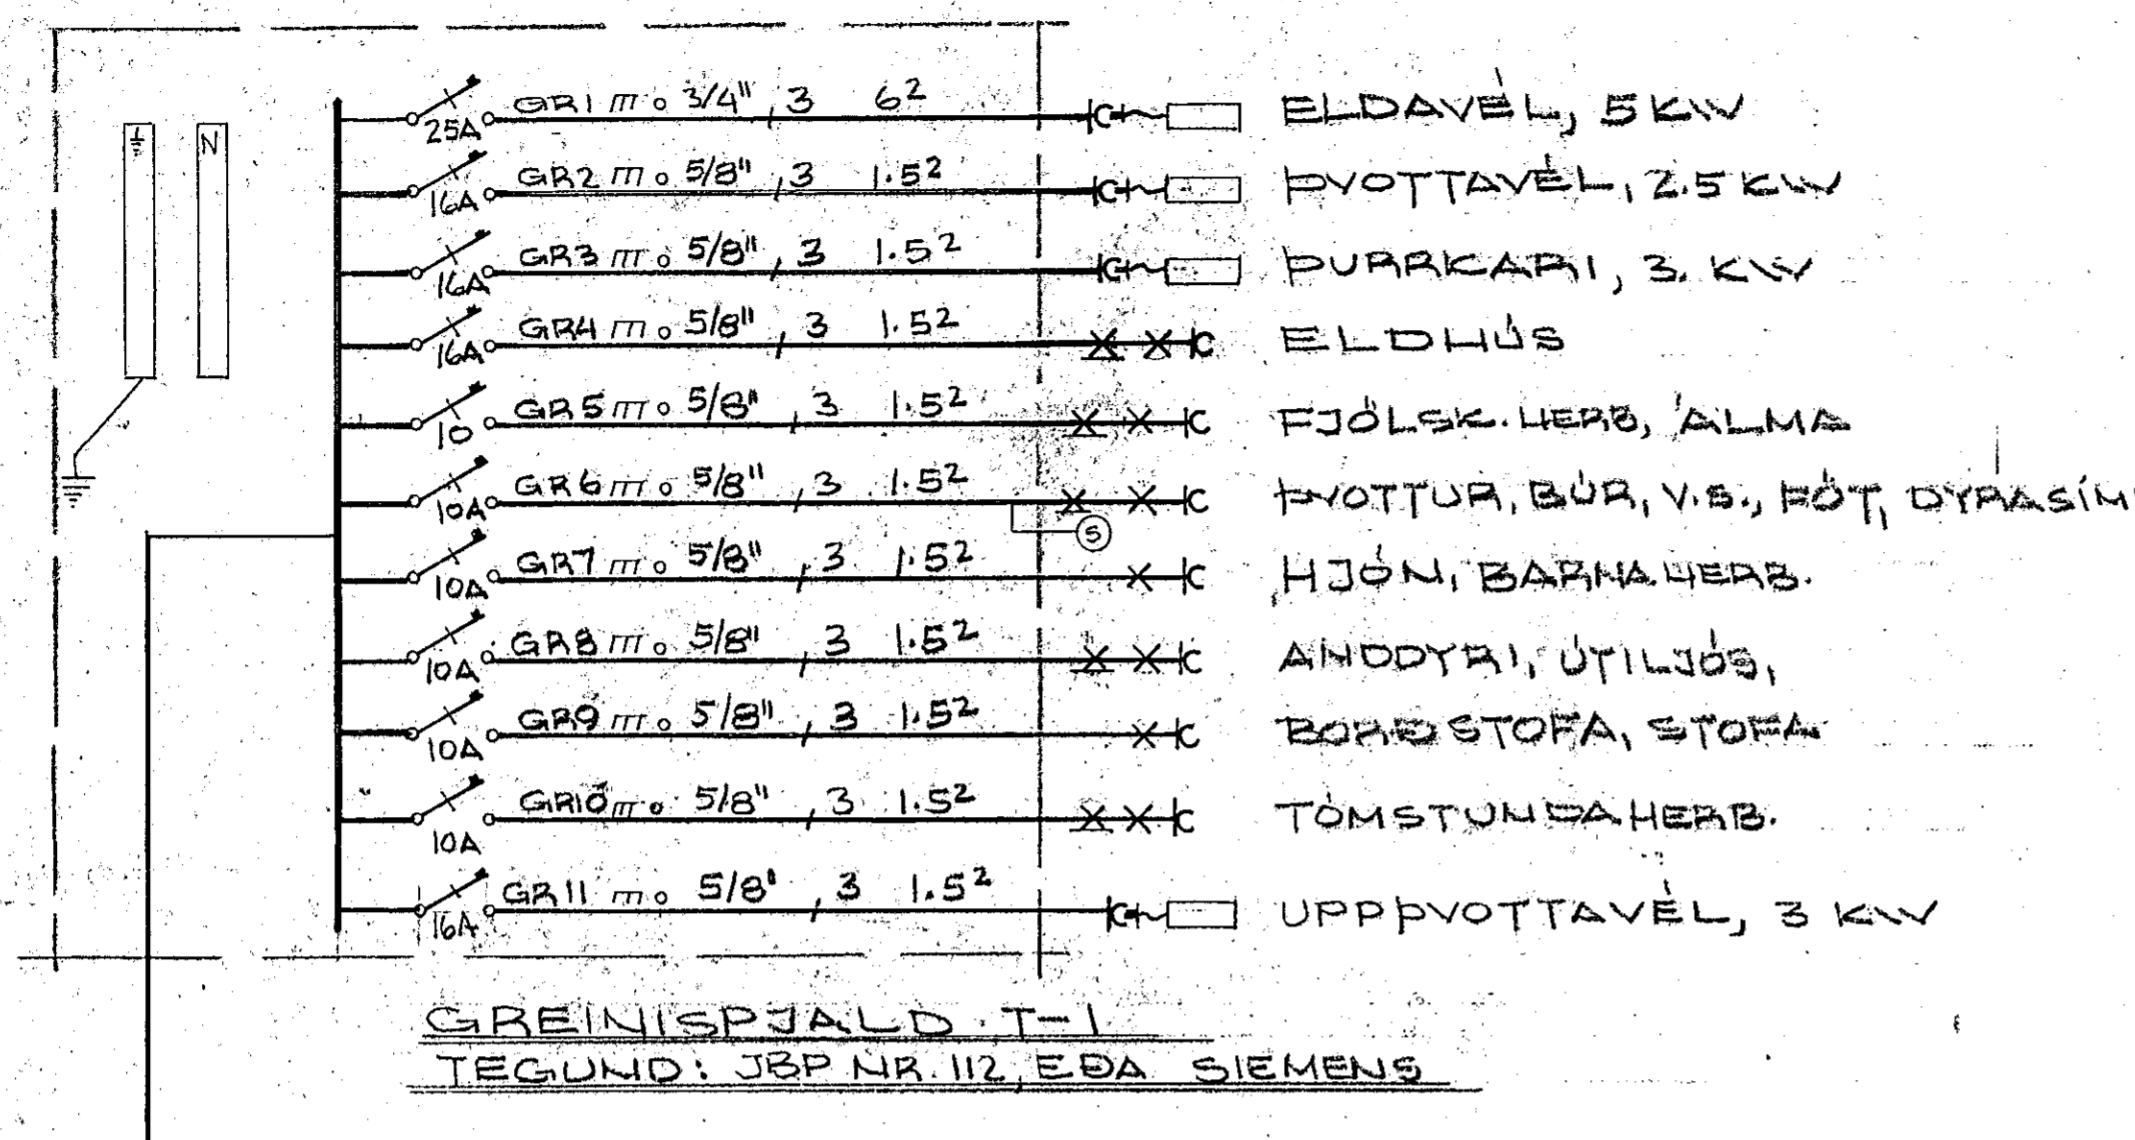 GR1 m. 3/4", 3 6² ELDAVÉL, 5 KW
25A
N
GR2 m. 5/8", 3 1.5² ÞVOTTAVÉL, 2.5 KW
16A
GR3 m. 5/8", 3 1.5² ÞURRKARI, 3. KW
16A
GR4 m. 5/8", 3 1.5² ELDHÚS
16A
GR5 m. 5/8", 3 1.5² FJÖLSK. HERB, ÁLMA
10
GR6 m. 5/8", 3 1.5² ÞVOTTUR, BÚR, V.S., FÖT, DYRASÍM
10A
S
GR7 m. 5/8", 3 1.5² HJÓN, BARNAHERB.
10A
GR8 m. 5/8", 3 1.5² ANDDYRI, ÚTILJÓS,
10A
GR9 m. 5/8", 3 1.5² BORÐSTOFA, STOFA
10A
GR10 m. 5/8", 3 1.5² TÓMSTUNDAHERB.
10A
GR11 m. 5/8", 3 1.5² UPPÞVOTTAVÉL, 3 KW
16A
GREINISPJALD T-1
TEGUND: JBP NR. 112, EÐA SIEMENS